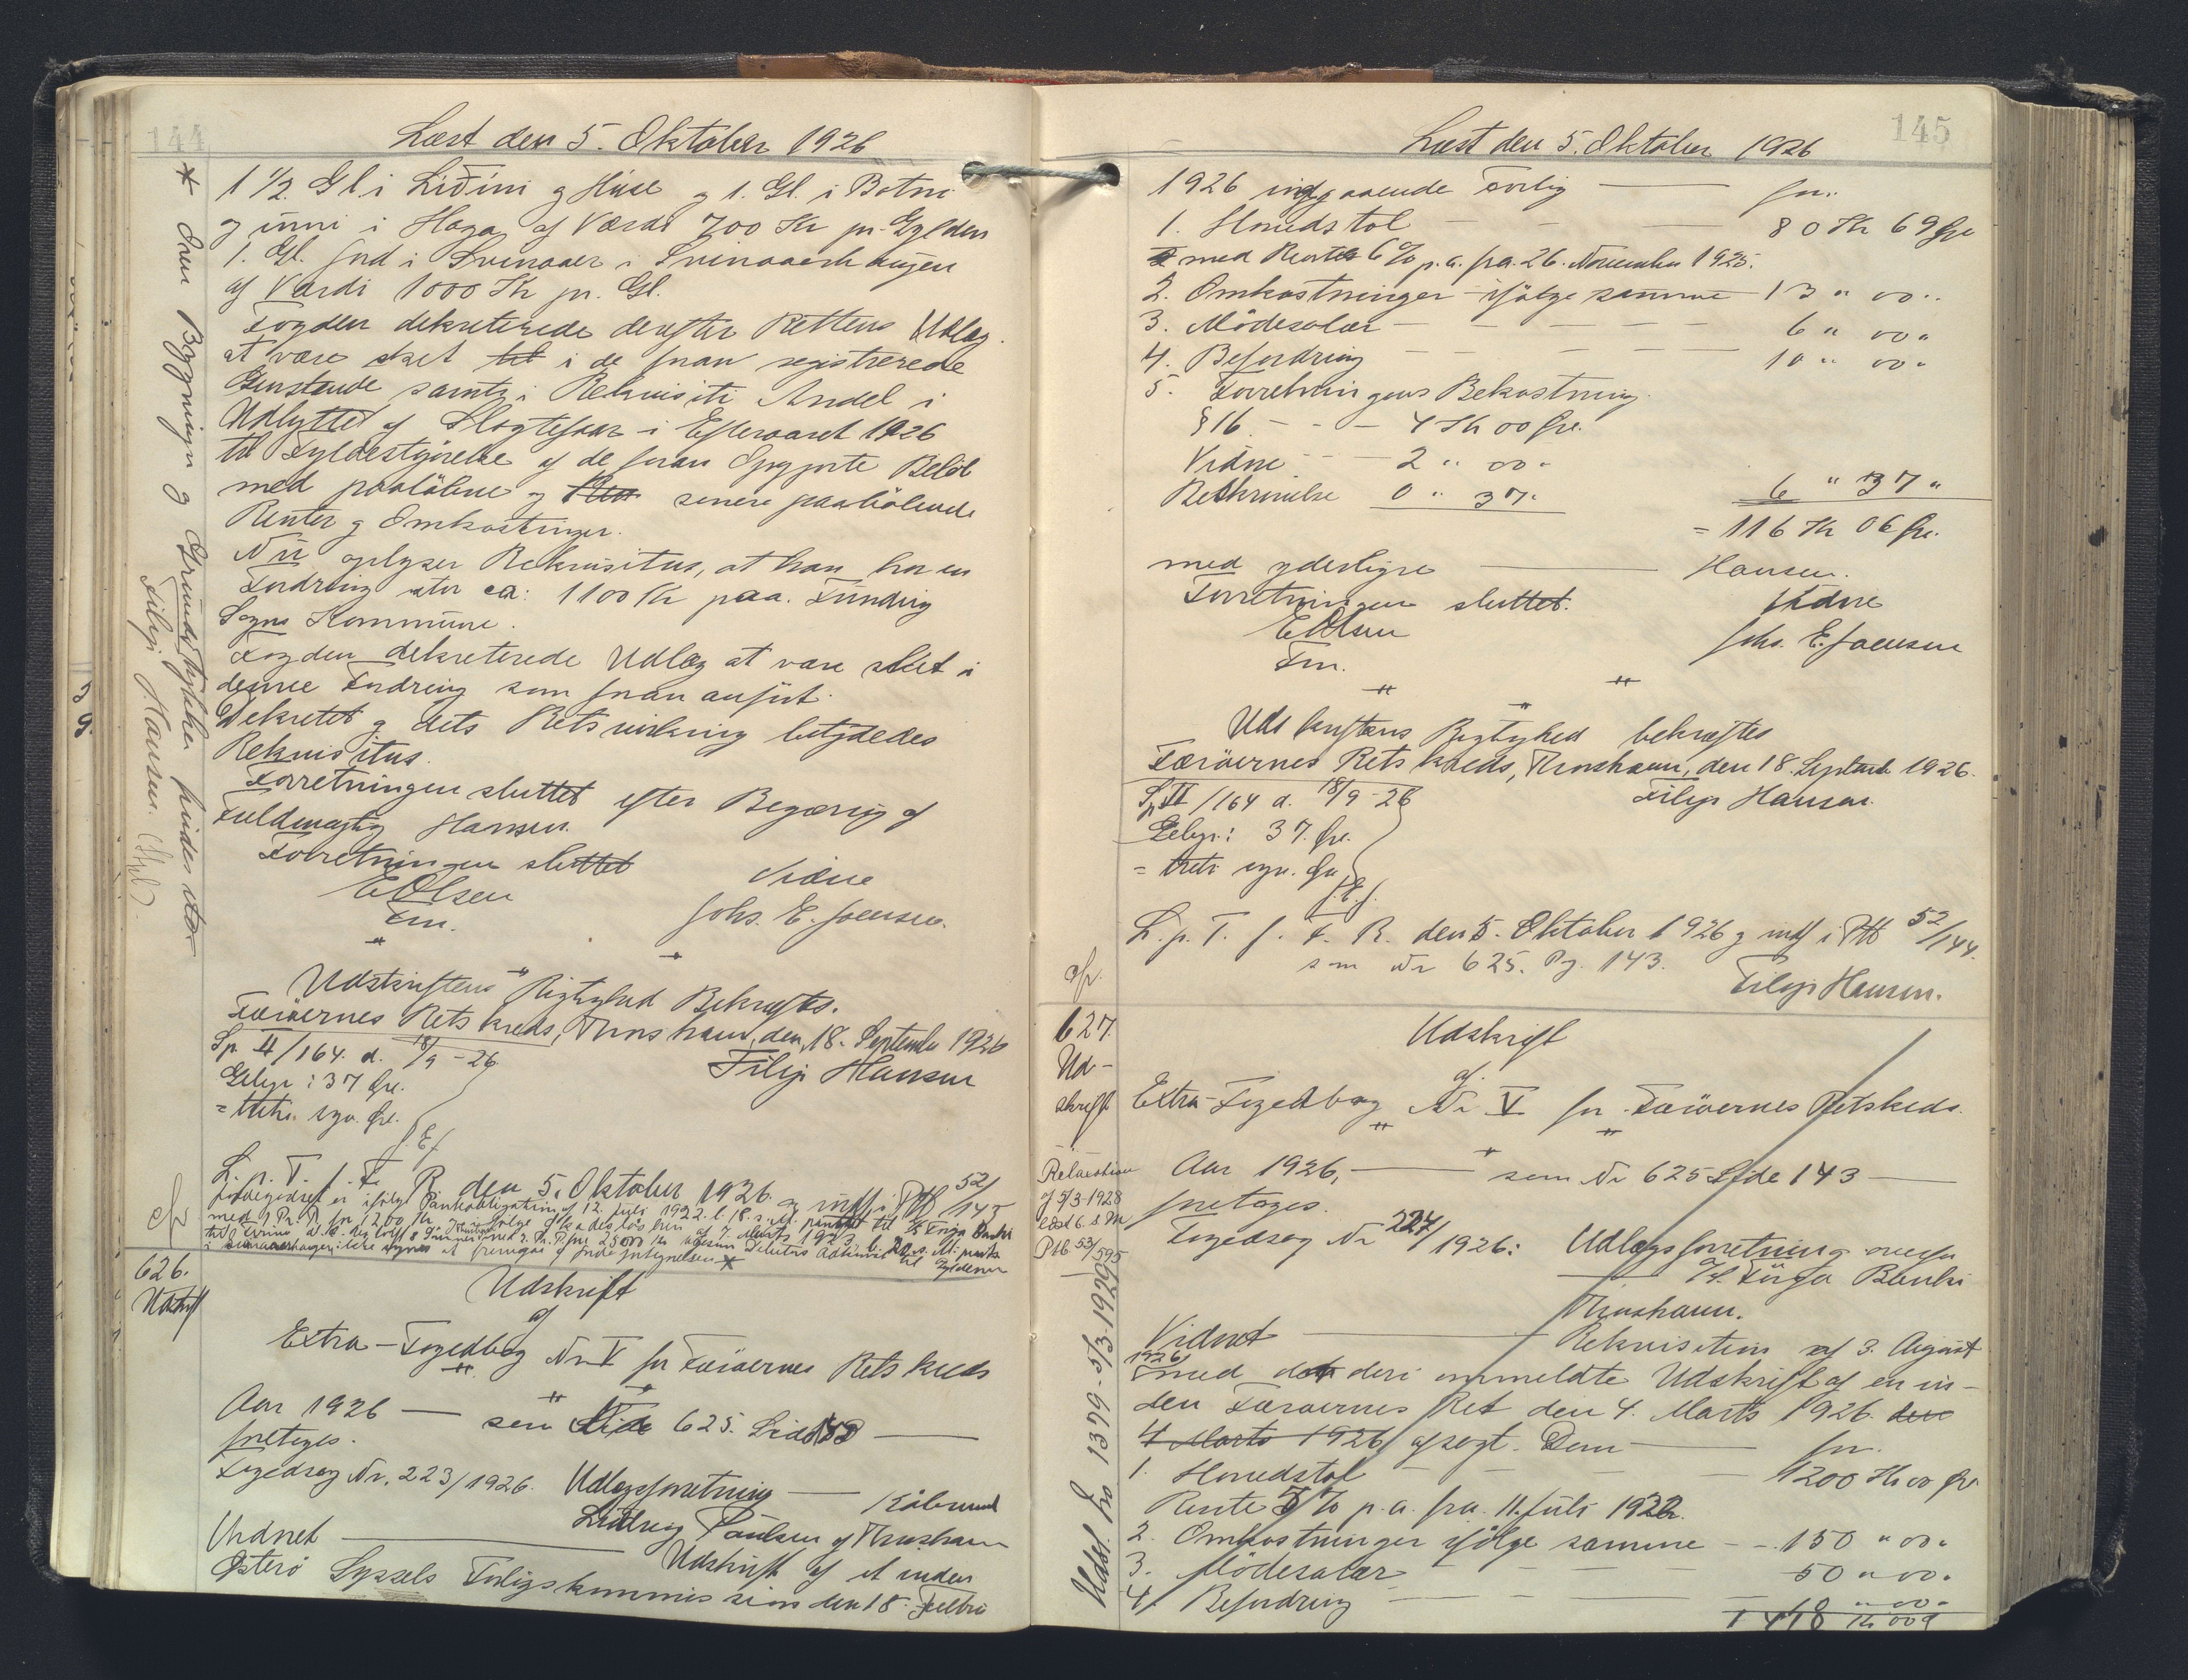 144
Læst den 5. Oktober 1926
1 1/2. Gl. i Lidini og Húse og 1. Gl. i Botni
og inni i Haga af Værdi 700 Kr pr. Gylden
1. Gl. Jord i Svinaaer i Svinaaerhaugen
af Værdi 1000 Kr pr. Gl.
Fogden dekreterede derefter Rettens Udlæg
at være sket til i de foran registrerede
Genstande samt i Rekvisiti Andel i
Udbyttet af Slagtefaar i Efteraaret 1926
til Fyldestgørelse af de foran Opgjorte Beløb
med paaløbne og Ren senere paaløbende
Renter og Omkostninger.
Nu oplyser Rekvisitus, at han har en
Fordring stor ca: 1100 Kr paa. Funding
Sogns Kommune.
Fogden dekreterede Udlæg at være sket i
denne Fordring som foran anført.
Dekretet og dets Retsvirkning betydedes
Rekvisitus.
Forretningen sluttet efter Begæring af
Fuldmægtig Hansen.
Forretningen sluttet
EOlsen
Fm.
Vidne
Johs. E. Joensen.
Udskriftens Rigtighed Bekræftes.
Færöernes Retskreds, Thorshavn, den 18. September 1926
Filip Hansen
Sp. II/164. d. 18/9-26.
Gebyr: 37 Øre.
= treti syv. Øre.
J. E. J.
L. p. T. f. F. R. den 5. Oktober 1926. og indf i Ptb 52/143
* Den Bygningen og Grundstykker findes
Filip Hansen. (Sml)
cfr
626.
Udskrift
Udskrift
af
Extra-Fogedbog Nr. V for Færöernes Retskreds
Aar 1926 — som Side 625. Side
foretoges.
Fogedsag Nr. 223/1926. Udlægsforretning — Købmand
Ludvig Poulsen af Thorshavn
Vidnet — Udskrift af et inden
Østerø Syssels Forligskommission den 18. Febru
145
Læst den 5. Oktober 1926
1926 indgaaende Forlig — for:
1. Hovedstol — 80 Kr 69 Øre
med Renter 6% p.a. fra 26. November 1925.
2. Omkostninger ifølge samme — 13 " 00 "
3. Mødesalær — 6 " 00 "
4. Befordring — 10 " 00 "
5. Forretningens Bekostning.
§16. - - - 4 Kr 00 Øre.
Vidne - - 2 " 00 "
Beskrivelse 0 " 37 "
6 " 37 "
= 116 Kr 06 Øre.
med yderligere — Hansen.
Forretningen sluttet.
EOlsen
Fm.
Vidne
Johs. E. Joensen
Udskriftens Rigtighed bekræftes
Færöernes Retskreds, Thorshavn, den 18. Septemb 1926.
Filip Hansen.
Sp II/164 d. 18/9-26
Gebyr: 37. Øre.
= treti syv. Øre
J. E. J.
L. p. T. f. F. R. den 5. Oktober 1926 og indf i Ptb 52/144.
som Nr 625. Pg. 143.
Filip Hansen.
cfr.
627.
Ud-
skrift
Udskrift
af
Extra-Fogedbog Nr V for Færöernes Retskreds.
Aar 1926, — som Nr 625 Side 143 —
foretoges.
Relaxation
af 5/3-1928
læst 6. s. M
Ptb 53/595
Udsl. fra 1379. 5/3-1928
Fogedsag Nr 224/1926: Udlægsforretning overfor
A/S. Föroya Banki
Thorshavn.
Vidnet — Rekvisition af 3. August
1926 med det deri ommeldte Udskrift af en in-
den Færöernes Ret den 4. Marts 1926. den
4 Marts 1926 afsagt. Dom — for.
1. Hovedstol — 1200 Kr 00 Øre
Rente 5% p.a. fra 11. Juli 1922.
2. Omkostninger ifølge samme - - 150 " 00 "
3. Mødesalær — 50 " 00 "
4. Befordring — 10 " 00 "